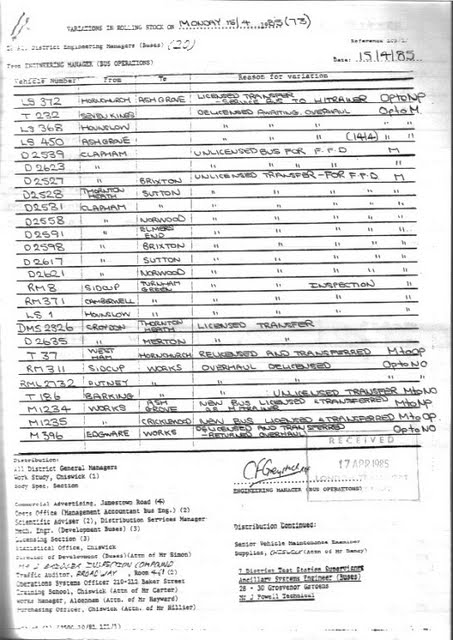 VARIATIONS IN ROLLING STOCK ON MONDAY 15/4 1985 (73)
To All District Engineering Managers (Buses) (20)
Reference
From ENGINEERING MANAGER (BUS OPERATIONS) Date: 15/4/85
Vehicle Number From To Reason for variation
LS 372 HORNCHURCH ASH GROVE LICENSED TRANSFER - SERVICE BUS TO HITRAINER Op to NP
T 232 SEVEN KINGS DELICENSED AWAITING OVERHAUL Op to M
LS 368 HOUNSLOW " " "
LS 450 ASHGROVE " " " (14/4) "
D 2539 CLAPHAM UNLICENSED BUS FOR F.F.D M
D 2623 " " " " "
D 2527 " BRIXTON UNLICENSED TRANSFER - FOR F.F.D M
D 2528 THORNTON HEATH SUTTON " " " "
D 2531 CLAPHAM " " " " "
D 2558 " NORWOOD " " " "
D 2591 " ELMERS END " " " "
D 2598 " BRIXTON " " " "
D 2617 " SUTTON " " " "
D 2621 " NORWOOD " " " "
RM 8 SIDCUP TURNHAM GREEN " " INSPECTION "
RM 371 CAMBERWELL " " " " "
LS 1 HOUNSLOW " " " " "
DMS 2326 CROYDON THORNTON HEATH LICENSED TRANSFER
D 2635 " MERTON " "
T 37 WEST HAM HORNCHURCH RELICENSED AND TRANSFERRED M to OP
RM 311 SIDCUP WORKS OVERHAUL DELICENSED Op to NO
RML 2732 PUTNEY " " " "
T 186 BARKING " " UNLICENSED TRANSFER M to NO
M 1234 WORKS ASH GROVE NEW BUS LICENSED & TRANSFERRED AS M TRAINER M to NP
M 1235 " CRICKLEWOOD NEW BUS LICENSED & TRANSFERRED M to OP
M 396 EDGWARE WORKS DELICENSED AND TRANSFERRED - RETURNED OVERHAUL Op to NO
RECEIVED
17 APR 1985
ENGINEERING MANAGER (BUS OPERATIONS)
Distribution:
All District General Managers
Work Study, Chiswick (1)
Body Spec. Section
Commercial Advertising, Jamestown Road (4)
Costs Office (Management Accountant Bus Eng.) (2)
Scientific Adviser (2), Distribution Services Manager
Mech. Engr. (Development Buses) (3)
Licensing Section (3)
Statistical Office, Chiswick
Director of Development (Buses) (Attn of Mr Simon)
INSPECTION COMPOUND
Traffic Auditor, BROADWAY, Room
Operations Systems Officer 210-212 Baker Street
Training School, Chiswick (Attn of Mr Carter)
Works Manager, Aldenham (Attn of Mr Hayward)
Purchasing Officer, Chiswick (Attn of Mr Hillier)
Distribution Continued:
Senior Vehicle Maintenance Examiner
Supplies, CHISWICK (Attn of Mr Haney)
7 District Test Station Supervisors
Ancillary Systems Engineer (Buses)
28 - 30 Grosvenor Gardens
Mr J Powell Technical